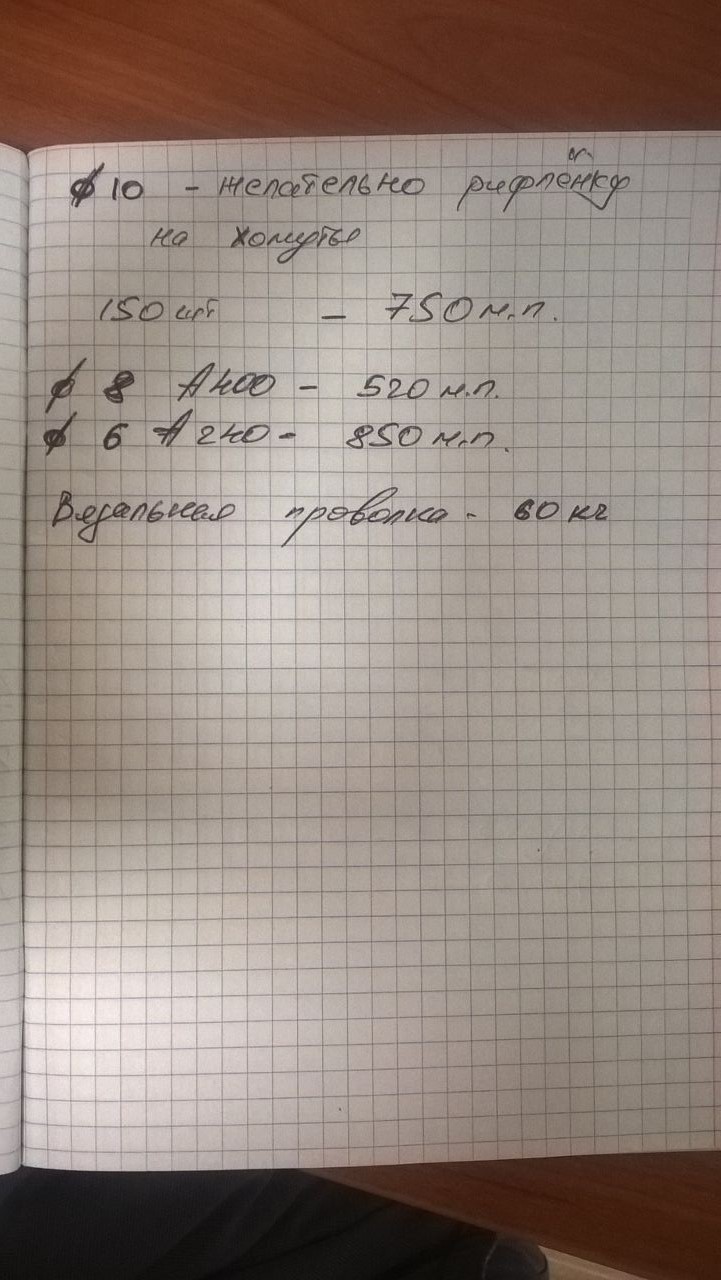 ⌀10 - желательно рифлёнку
на хомуты
150 шт - 750 м.п.
⌀ 8 А400 - 520 м.п.
⌀ 6 А240 - 850 м.п.
Вязальная проволка - 60 кг